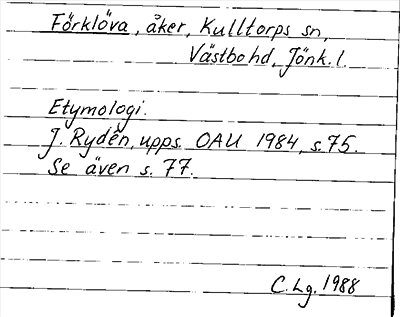 Förklöva, åker, Kulltorps sn,
Västbo hd, Jönk. l.
Etymologi.
J. Rydén, upps. OAU 1984, s. 75.
Se även s. 77.
C. Lg. 1988